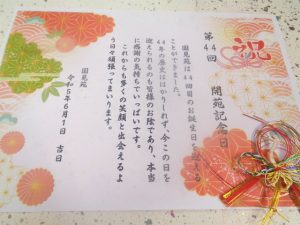 祝
第44回
開苑記念日
園見苑は44回目のお誕生日を迎える
ことができました。
44年の歴史ははかりしれず、今この日を
迎えられるのも皆様のお陰であり、本当
に感謝の気持ちでいっぱいです。
これからも多くの笑顔と出会えるよ
う日々頑張ってまいります。
園見苑
令和5年6月1日 吉日